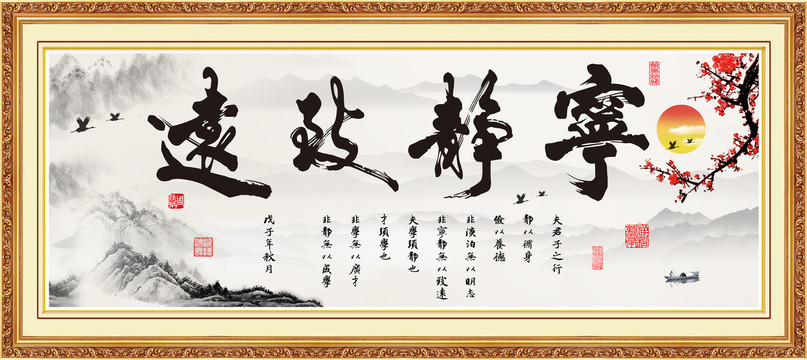 寧靜致遠
夫君子之行
靜以脩身
儉以養德
非淡泊無以明志
非寧靜無以致遠
夫學須靜也
才須學也
非學無以廣才
非靜無以成學
戊子年秋月